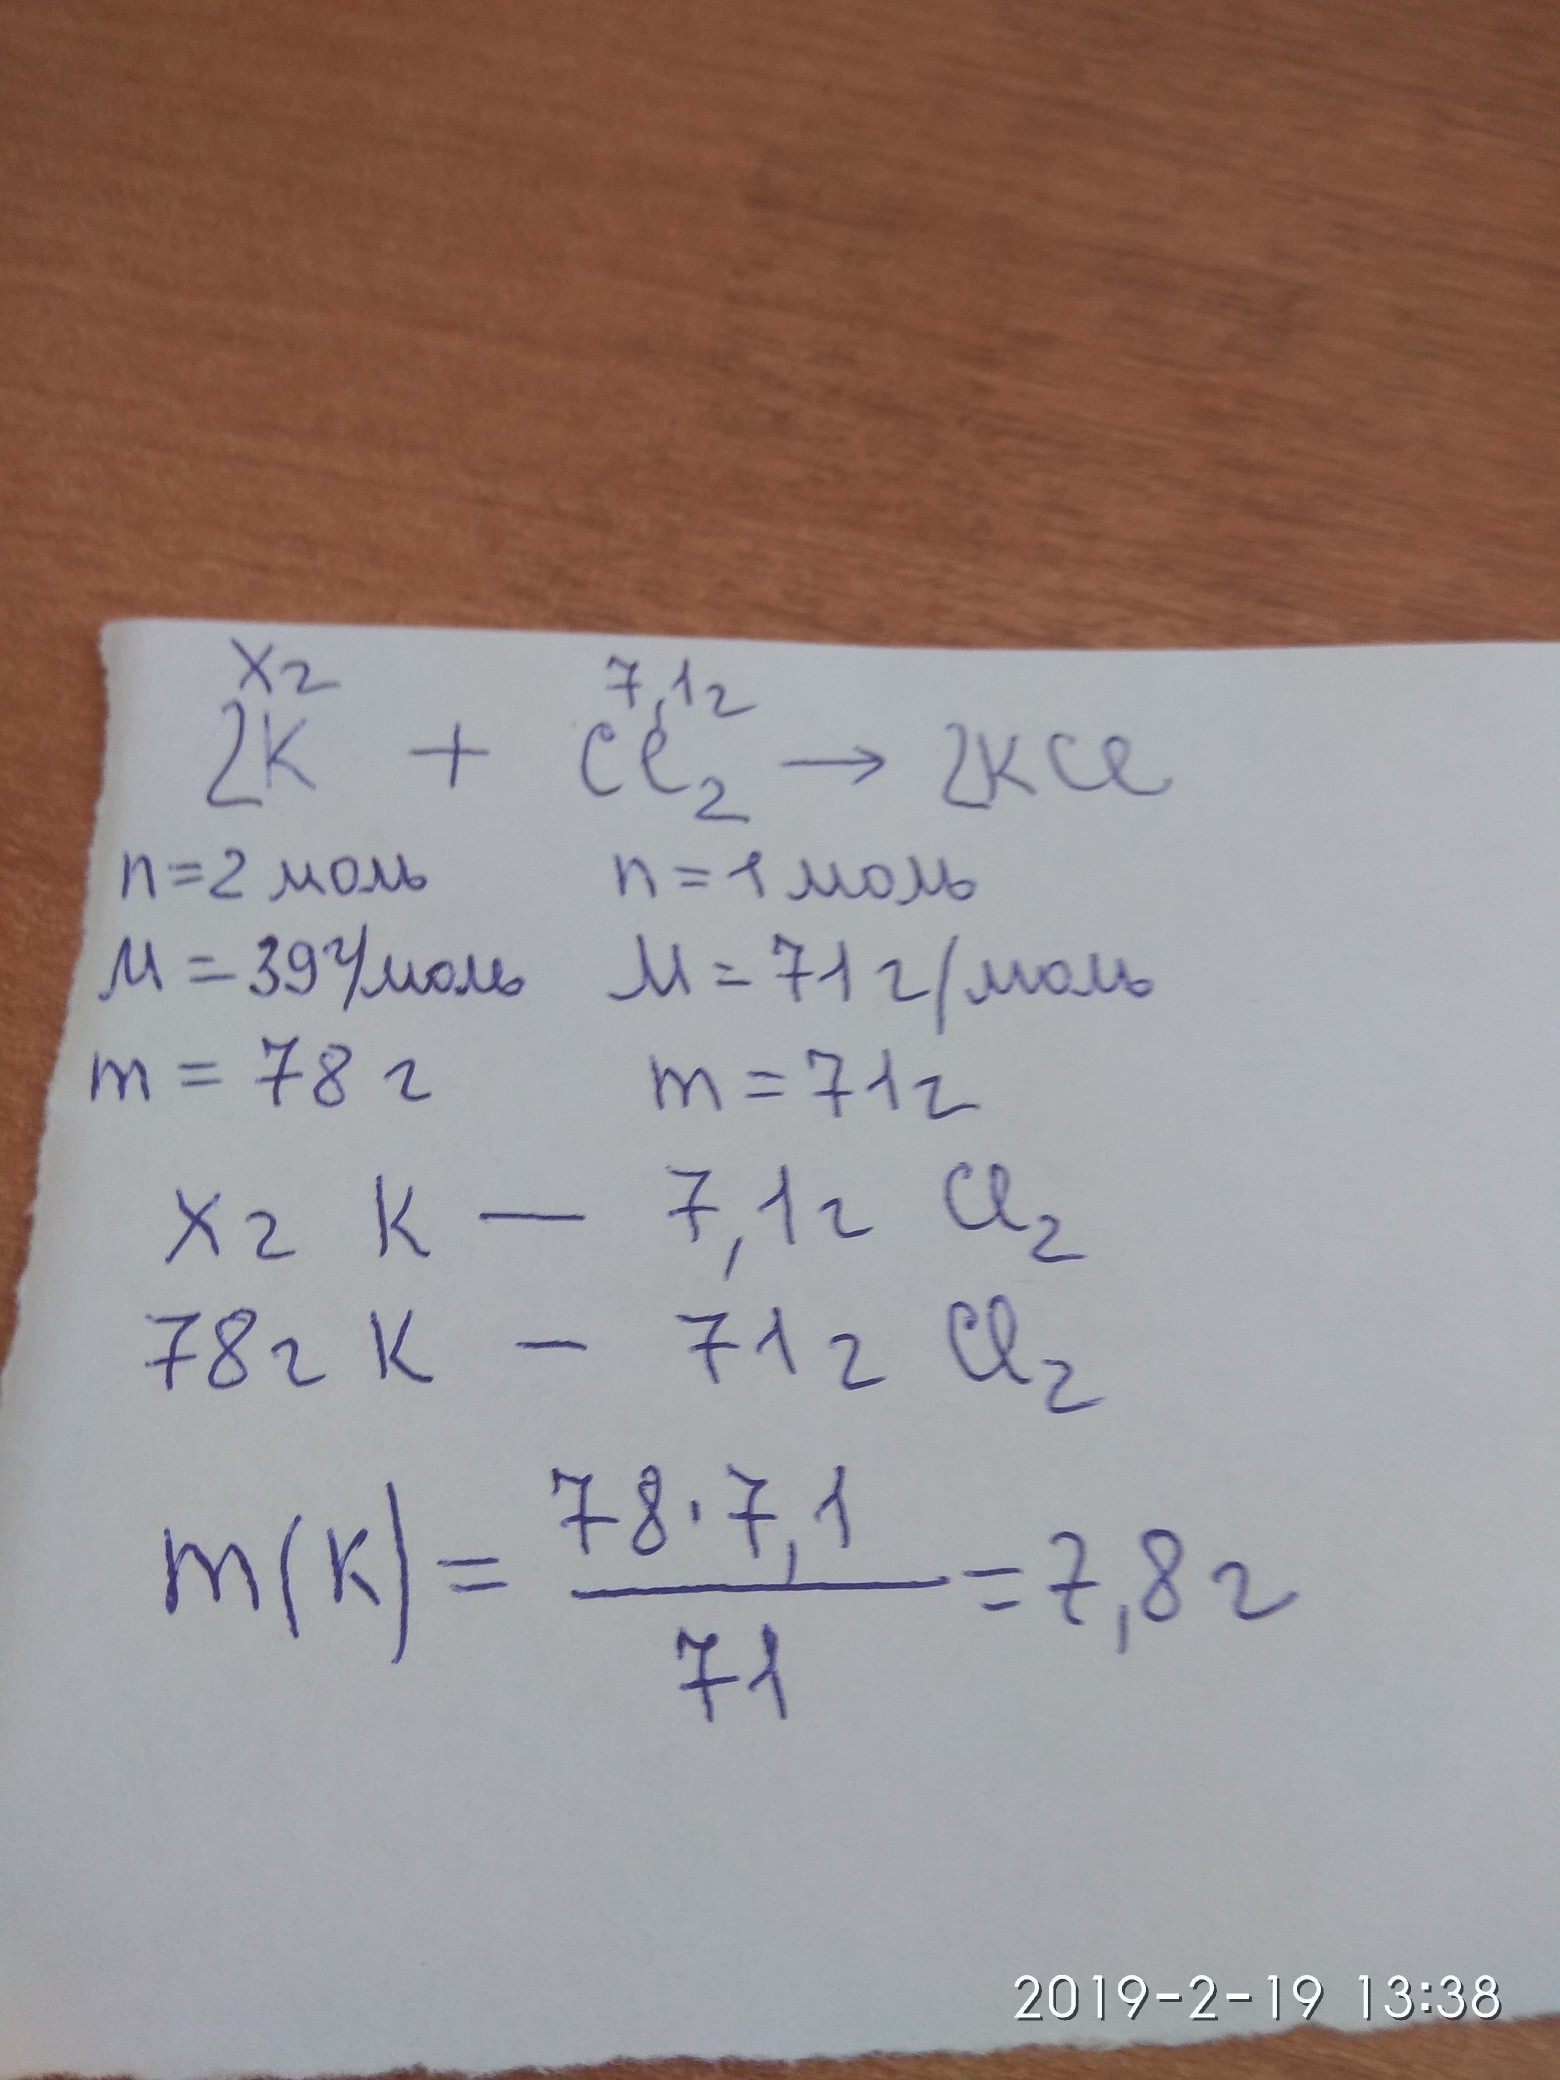 xг 7,1г
2K + Cl₂ → 2KCl
n=2 моль n=1 моль
M=39г/моль M=71г/моль
m=78г m=71г
xг K — 7,1г Cl₂
78г K – 71г Cl₂
m(K) = 78·7,1 / 71 = 7,8г
2019-2-19 13:38